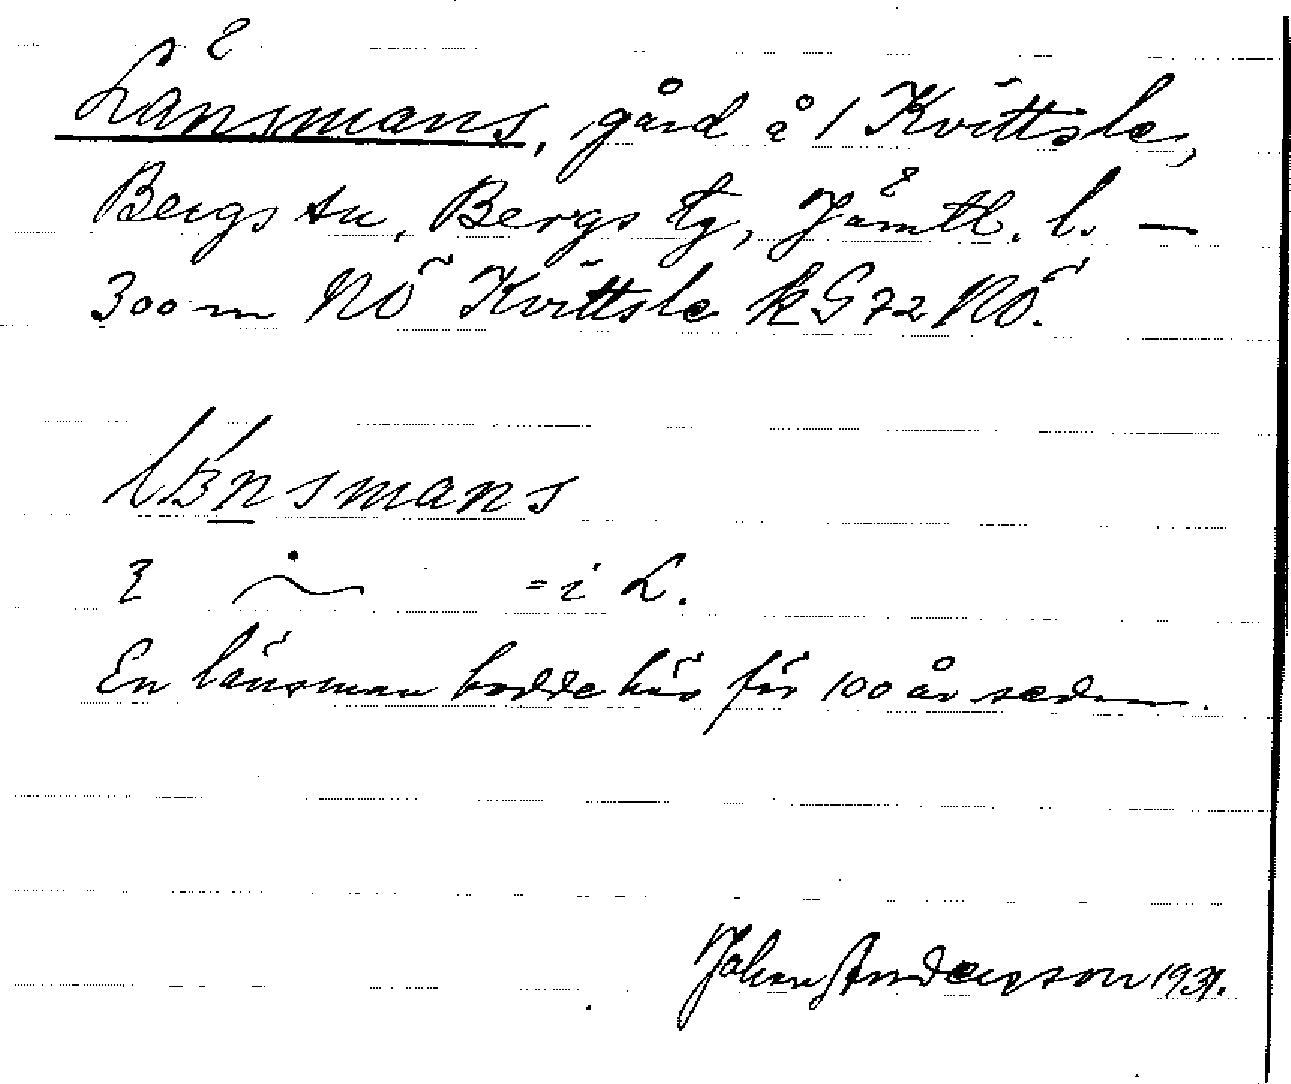 Länsmans, gård å 1 Kvittsle,
Bergs sn, Bergs tg, Jämtl. l. —
300 m NÖ Kvittsle kG72 NÖ.
lɛnsmans
= i L.
En länsman bodde här för 100 år sedan.
Johan Andersson 1931.